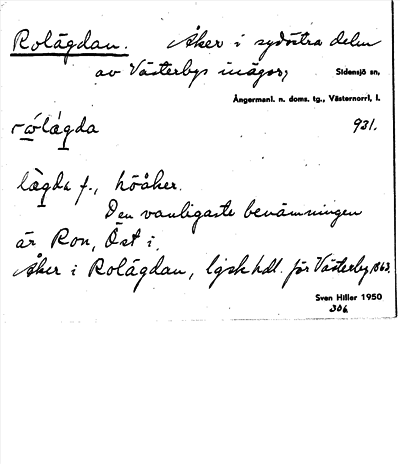 Rolägdan. Åker i sydöstra delen
av Västerbys inägor, Sidensjö sn,
Ångermanl. n. doms. tg., Västernorrl. l.
rólágda 931.
lägda f., höåker.
Den vanligaste benämningen
är Ron, Öst i.
Åker i Rolägdan, lgsk hdl. för Västerby 1863.
Sven Hiller 1950
306